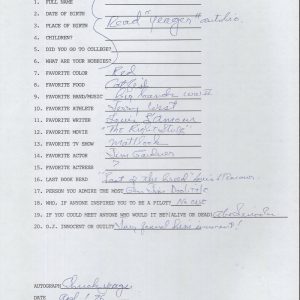 1. FULL NAME
2. DATE OF BIRTH
3. PLACE OF BIRTH Read "Yeager" autobio.
4. CHILDREN?
5. DID YOU GO TO COLLEGE?
6. WHAT ARE YOUR HOBBIES?
7. FAVORITE COLOR Red
8. FAVORITE FOOD
9. FAVORITE BAND/MUSIC Big bands WW II
10. FAVORITE ATHLETE Jerry West
11. FAVORITE WRITER Louis L'Amour
12. FAVORITE MOVIE "The Right Stuff"
13. FAVORITE TV SHOW Matlock
14. FAVORITE ACTOR Jim Garner
15. FAVORITE ACTRESS ?
16. LAST BOOK READ of the breed" Louis L'Amour
17. PERSON YOU ADMIRE THE MOST Gen Jim Doolittle
18. WHO, IF ANYONE INSPIRED YOU TO BE A PILOT? No one
19. IF YOU COULD MEET ANYONE WHO WOULD IT BE (ALIVE OR DEAD) Abe Lincoln
20. O.J. INNOCENT OR GUILTY
AUTOGRAPH Chuck Yeager
DATE